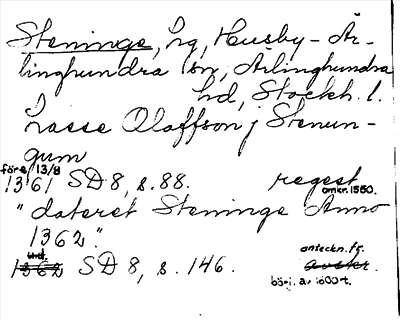 Steninge, hg, Husby-Är-
linghundra sn, Ärlinghundra
hd, Stockh. l.
Lasse Olaffson j Stenun-
gum
före 13/8
1361 SD 8, s. 88. regest omkr. 1550.
" dateret Steninge Anno
1362."
u.d. anteckn. fr.
1362 SD 8, s. 146. avskr.
börj. av 1600-t.